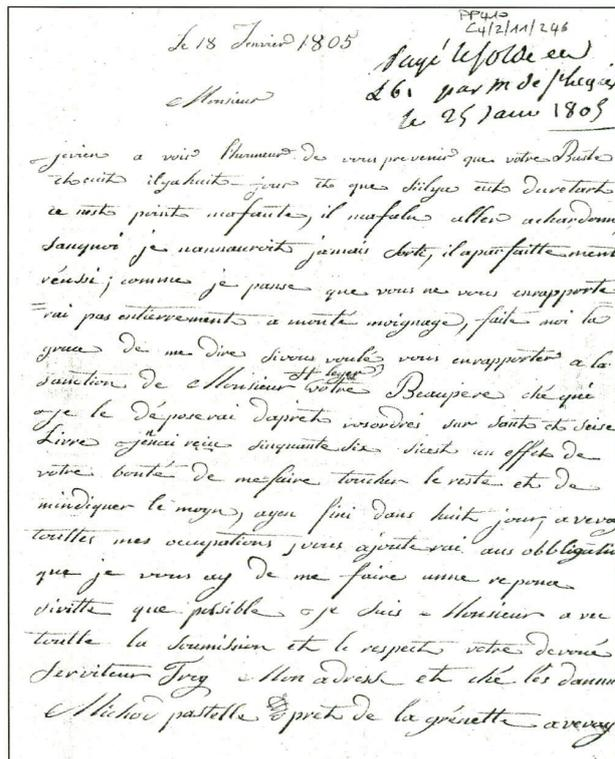 PP410
C4/2/11/246
Le 18 Jenvier 1805
Payé le solde en
£61 par M de
le 25 Janv 1805
Monsieur
jevien a voir l'honneur de vous prevenir que votre Buste
et cuit ilyahuit jour et que silya eut duretart
ce nest point mafaute, il mafalu aller achardonne
sanquoi je nannauroit jamais sorti, il aparfaittement
réussi; comme je panse que vous ne vous enrapporte
rai pas entierrement a monté moignage, faite moi la
grace de me dire sivous voulé vous enrapporter a la
sanction de Monsieur votre Beaupere ché qui
St leger
je le déposerai daprèt vosordres sur sant et seise
Livre jenai reçu sinquante six sicest un effet de
votre bonté de mefaire toucher le reste et de
mindiquer le moyn, ayen fini dans huit jour, avevay
touttes mes occupations, vous ajouterai aus obbligation
que je vous ay de me faire unne reponce
sivitte que possible je suis Monsieur a vec
toutte la soumission et le respect votre devoué
Serviteur Trey Mon adress et ché les
Michod pastelle prèt de la grénette avevay